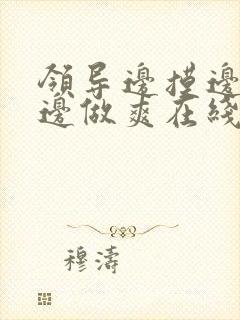 領导邊摸邊
邊做爽在綫
穆濤